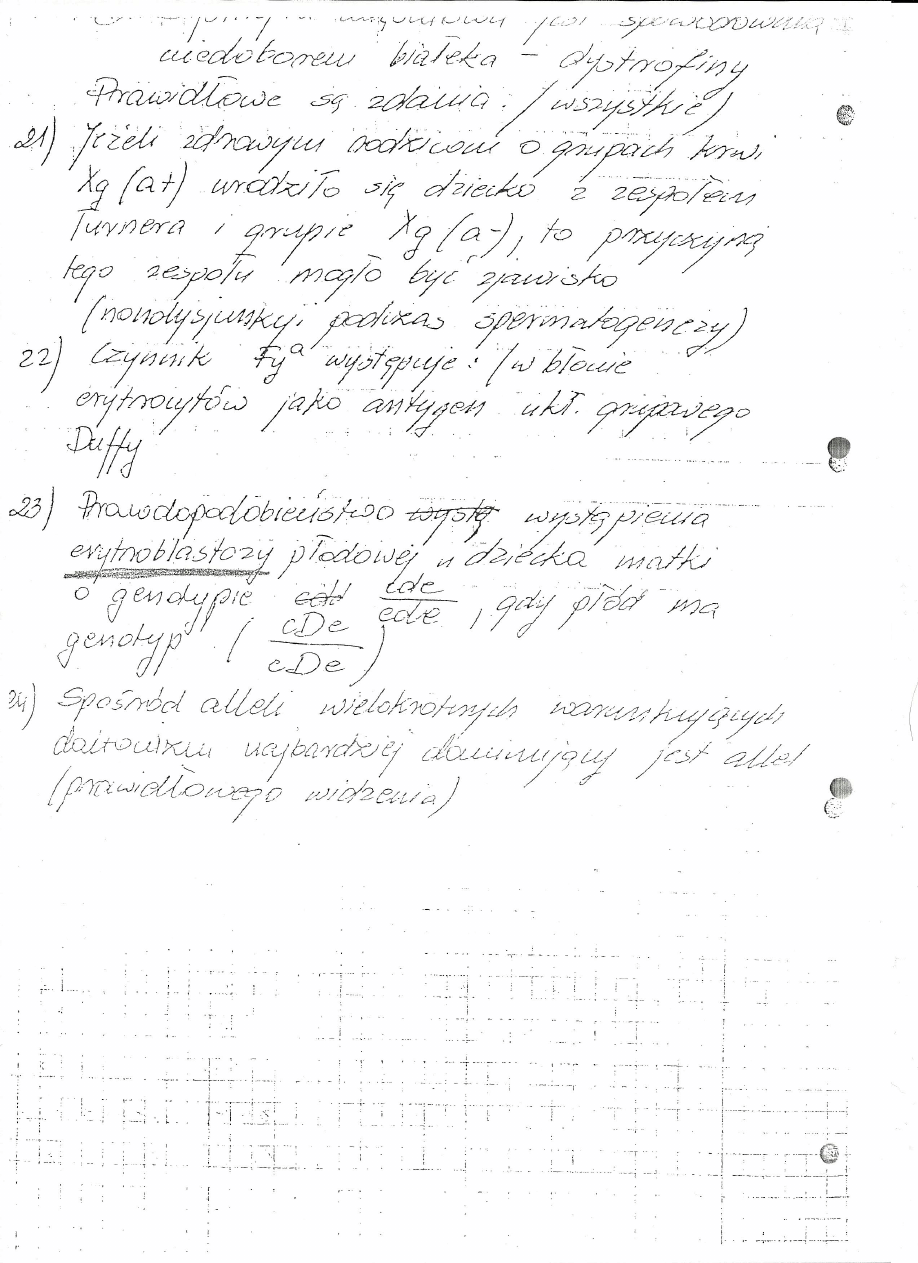 jest spowodowana
niedoborem białka - dystrofiny
Prawidłowe są zdania: (wszystkie)
21) Jeżeli zdrowym rodzicom o grupach krwi
Xg (a+) urodziło się dziecko z zespołem
Turnera i grupie Xg (a-), to przyczyną
tego zespołu mogło być zjawisko
(nondysjunkcji podczas spermatogenezy)
22) Czynnik Fyᵃ występuje: (w błonie
erytrocytów jako antygen ukł. grupowego
Duffy
23) Prawdopodobieństwo wystą wystąpienia
erytroblastozy płodowej u dziecka matki
o genotypie cdd cde/cde, gdy płód ma
genotyp (cDe/cDe)
24) Spośród alleli wielokrotnych warunkujących
daltonizm najbardziej dominujący jest allel
(prawidłowego widzenia)